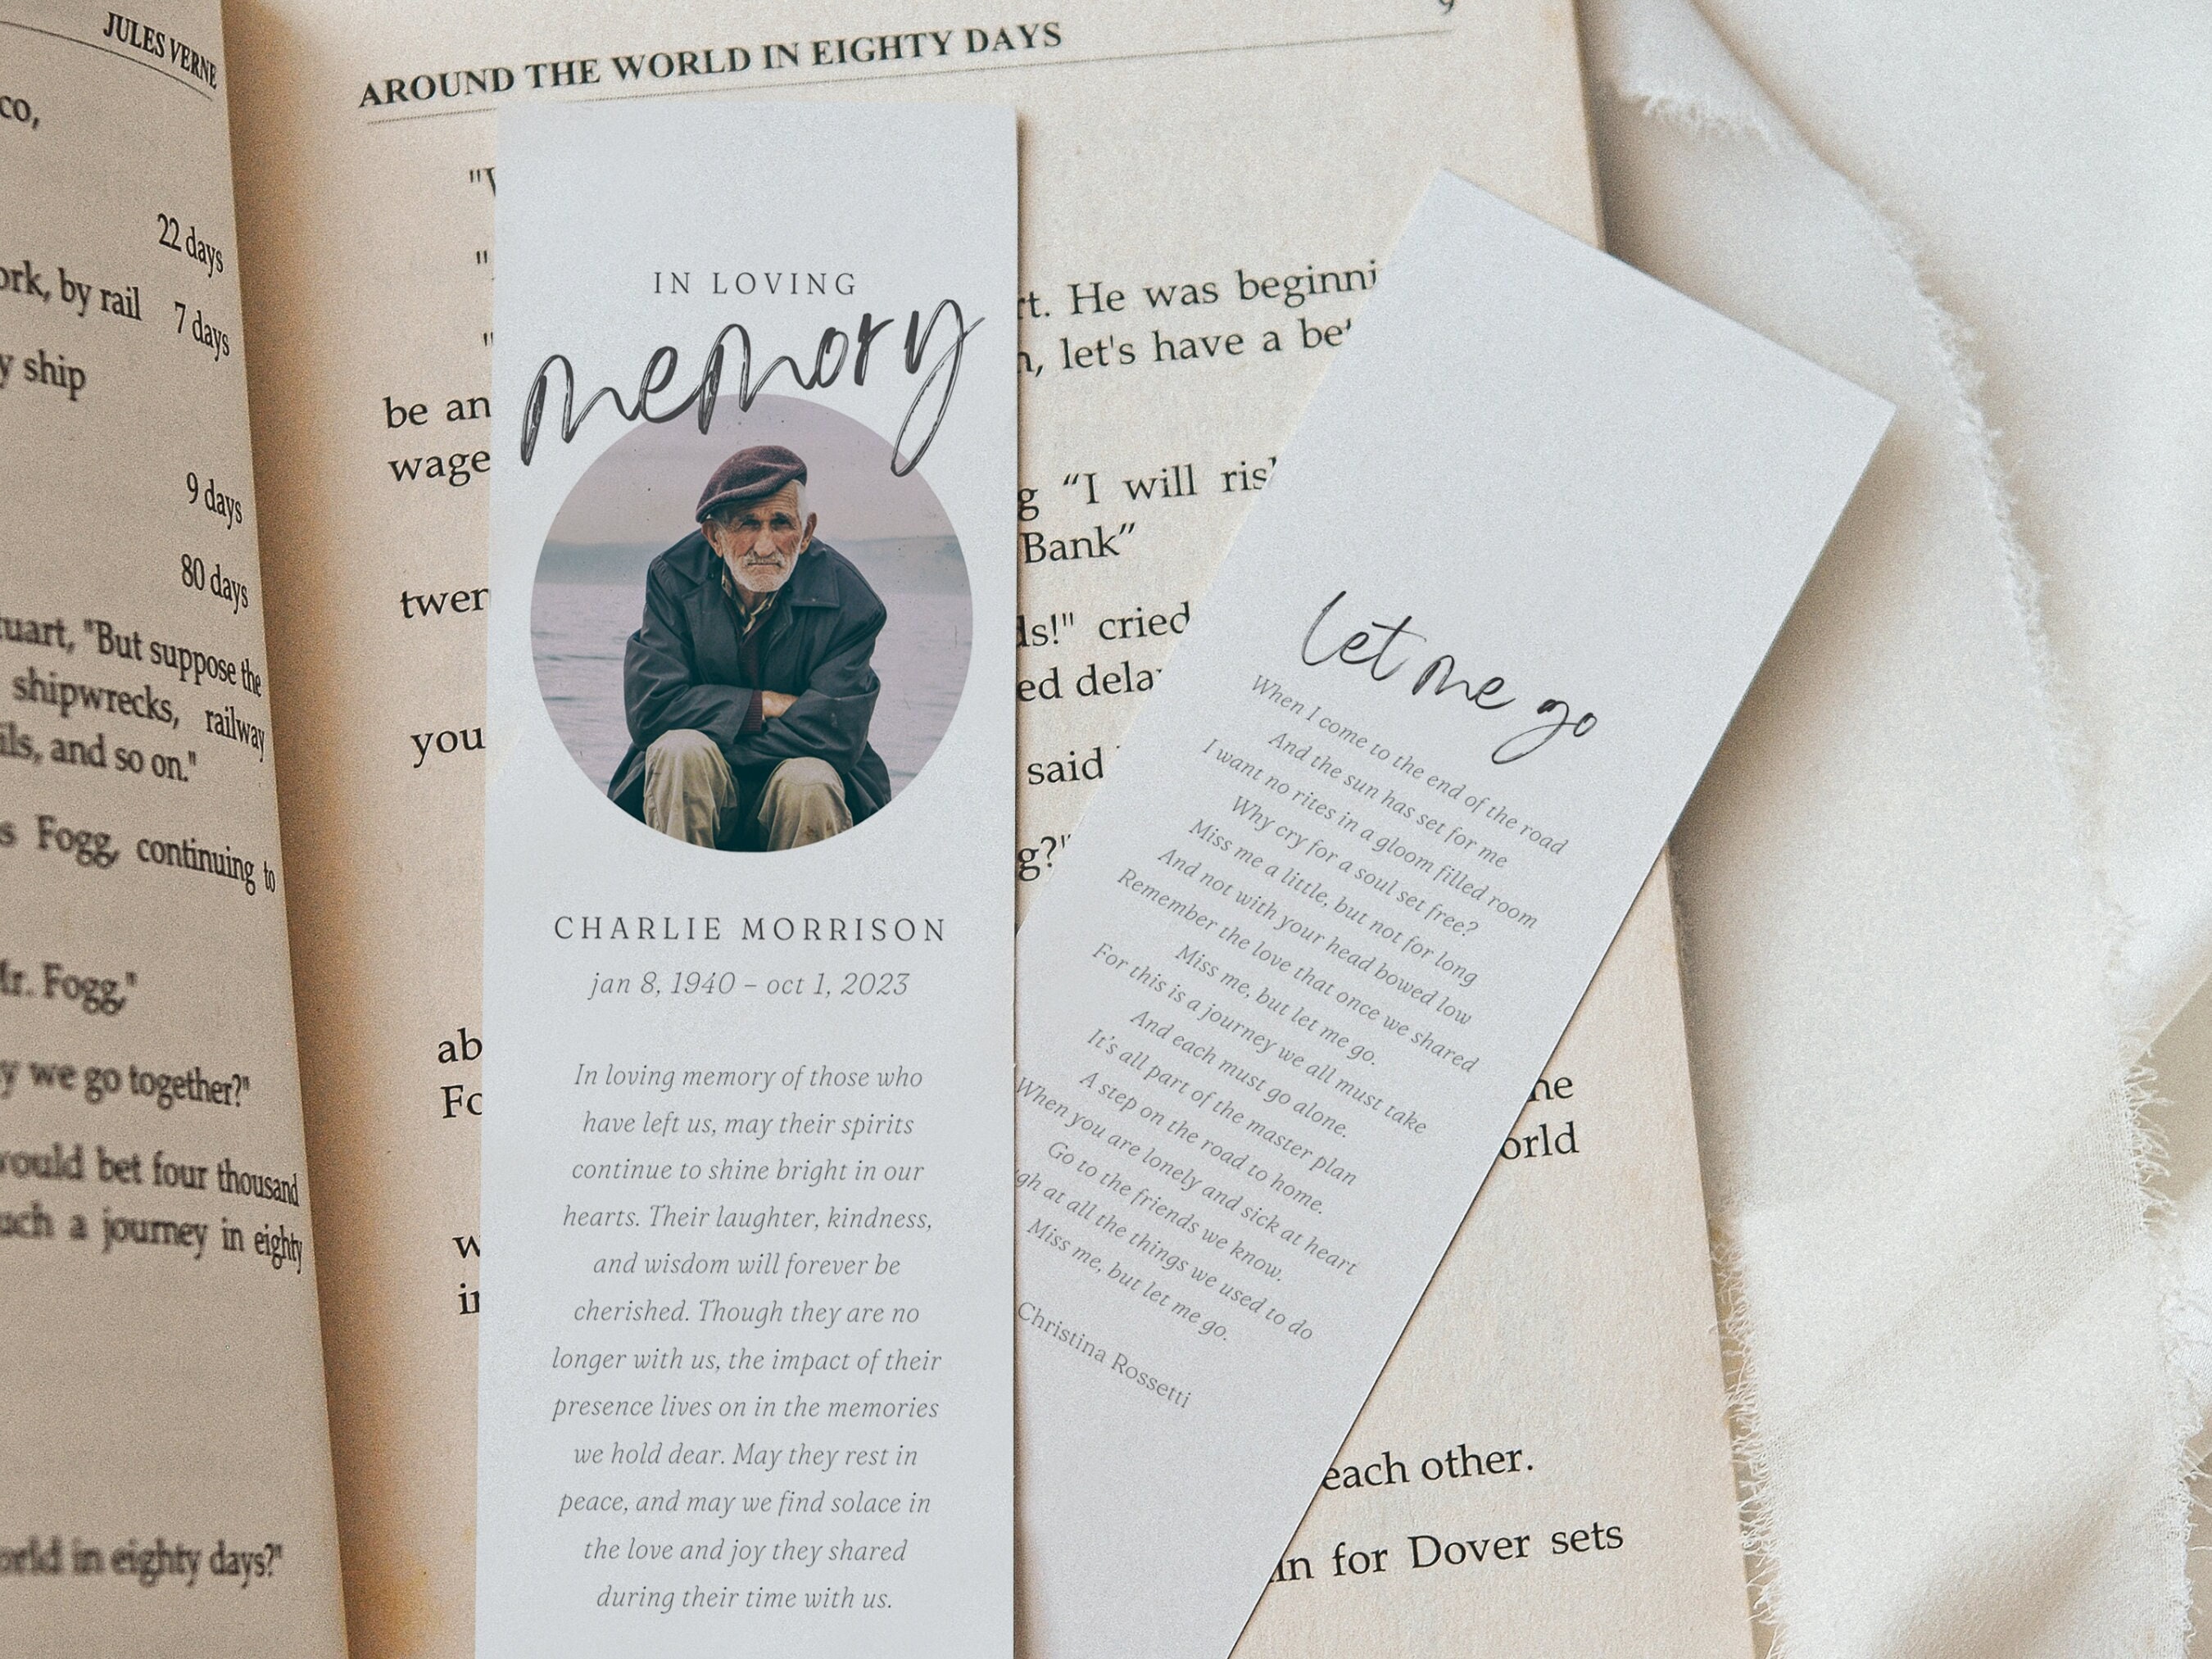 JULES VERNE
co,
22 days
ork, by rail 7 days
y ship
9 days
80 days
tuart, "But suppose the
shipwrecks, railway
ils, and so on."
s Fogg, continuing to
Mr. Fogg,"
y we go together?"
would bet four thousand
such a journey in eighty
orld in eighty days?"
9
AROUND THE WORLD IN EIGHTY DAYS
rt. He was beginni
n, let's have a be
be an
wage
g “I will ris
Bank”
twer
ds!" cried
ed dela
you
said
g?"
ab
Fo
ne
orld
w
in
each other.
in for Dover sets
IN LOVING
memory
CHARLIE MORRISON
jan 8, 1940 – oct 1, 2023
In loving memory of those who
have left us, may their spirits
continue to shine bright in our
hearts. Their laughter, kindness,
and wisdom will forever be
cherished. Though they are no
longer with us, the impact of their
presence lives on in the memories
we hold dear. May they rest in
peace, and may we find solace in
the love and joy they shared
during their time with us.
let me go
When I come to the end of the road
And the sun has set for me
I want no rites in a gloom filled room
Why cry for a soul set free?
Miss me a little, but not for long
And not with your head bowed low
Remember the love that once we shared
Miss me, but let me go.
For this is a journey we all must take
And each must go alone.
It's all part of the master plan
A step on the road to home.
When you are lonely and sick at heart
Go to the friends we know.
gh at all the things we used to do
Miss me, but let me go.
Christina Rossetti